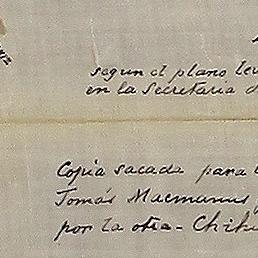 segun el plano lev
en la Secretaria d
Copia sacada para
Tomás Macmanus y
por la otra - Chih